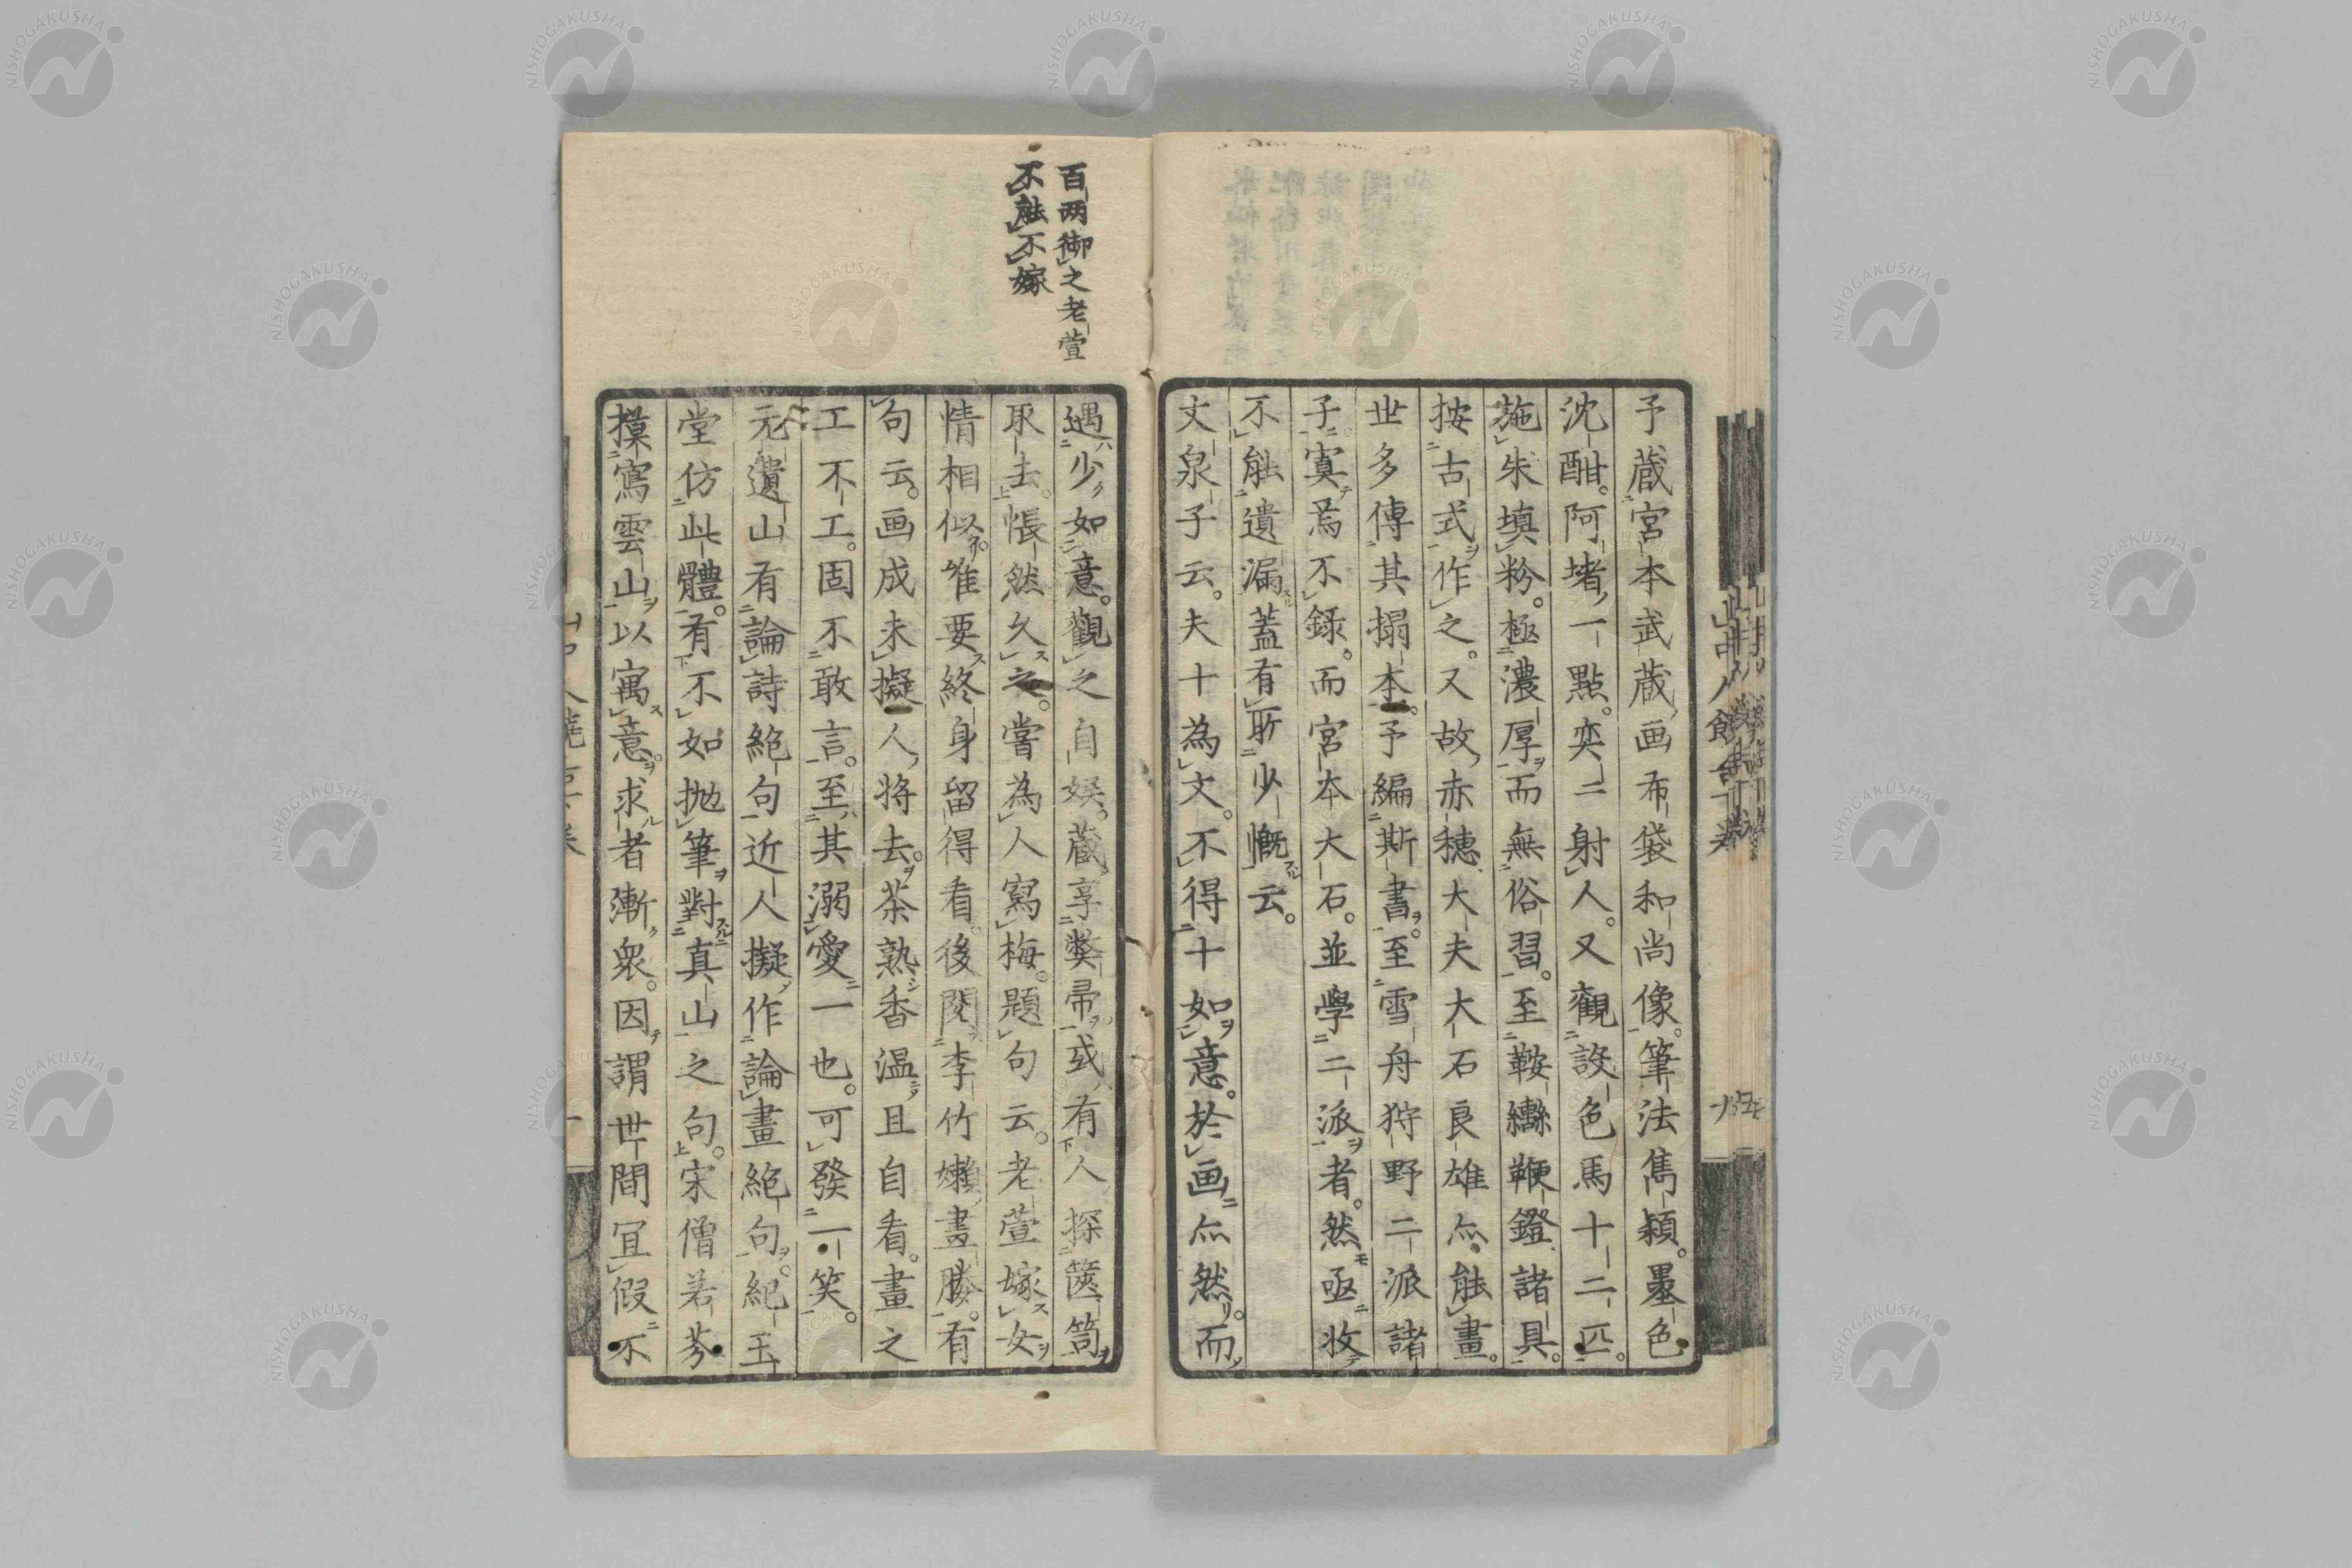 予蔵宮本武蔵画布袋和尚像。筆法雋穎。墨色
沈酣。阿堵一點。奕二射人。又觀設色馬十二匹。
施朱填粉。極濃厚而無俗習。至鞍轡鞭鐙諸具。
按古式作之。又故赤穂大夫大石良雄亦能畫。
世多傳其搨本。予編斯書。至雪舟狩野二派諸
子。寘焉不錄。而宮本大石。並學二派者。然亟收
不能遺漏。蓋有所少慨云。
文泉子云。夫十為文。不得十如意。於画亦然。而
百两御之老萱
不能不嫁
遇少如意。觀之自娛。蔵享獘帚。或有人探篋笥
取去。悵然久之。嘗為人寫梅。題句云。老萱嫁女
情相似。唯要終身留得看。後閱李竹嬾畫媵。有
句云。画成未擬人將去。茶熟香温且自看。畫之
工不工。固不敢言。至其溺愛一也。可發一笑。
元遺山有論詩絕句。近人擬作論畫絕句。紀玉
堂仿此體。有不如抛筆對真山之句。宋僧若芬
摸寫雲山以寓意。求者漸衆。因謂世間宜假不
NISHOGAKUSHA